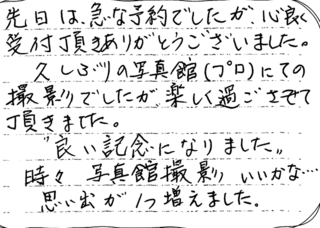 先日は、急な予約でしたが、心良く
受付頂きありがとうございました。
久しぶりの写真館(プロ)にての
撮影でしたが、楽しく過ごさせて
頂きました。
"良い記念になりました〟
時々 写真館撮影 いいかな…
思い出が1つ増えました。